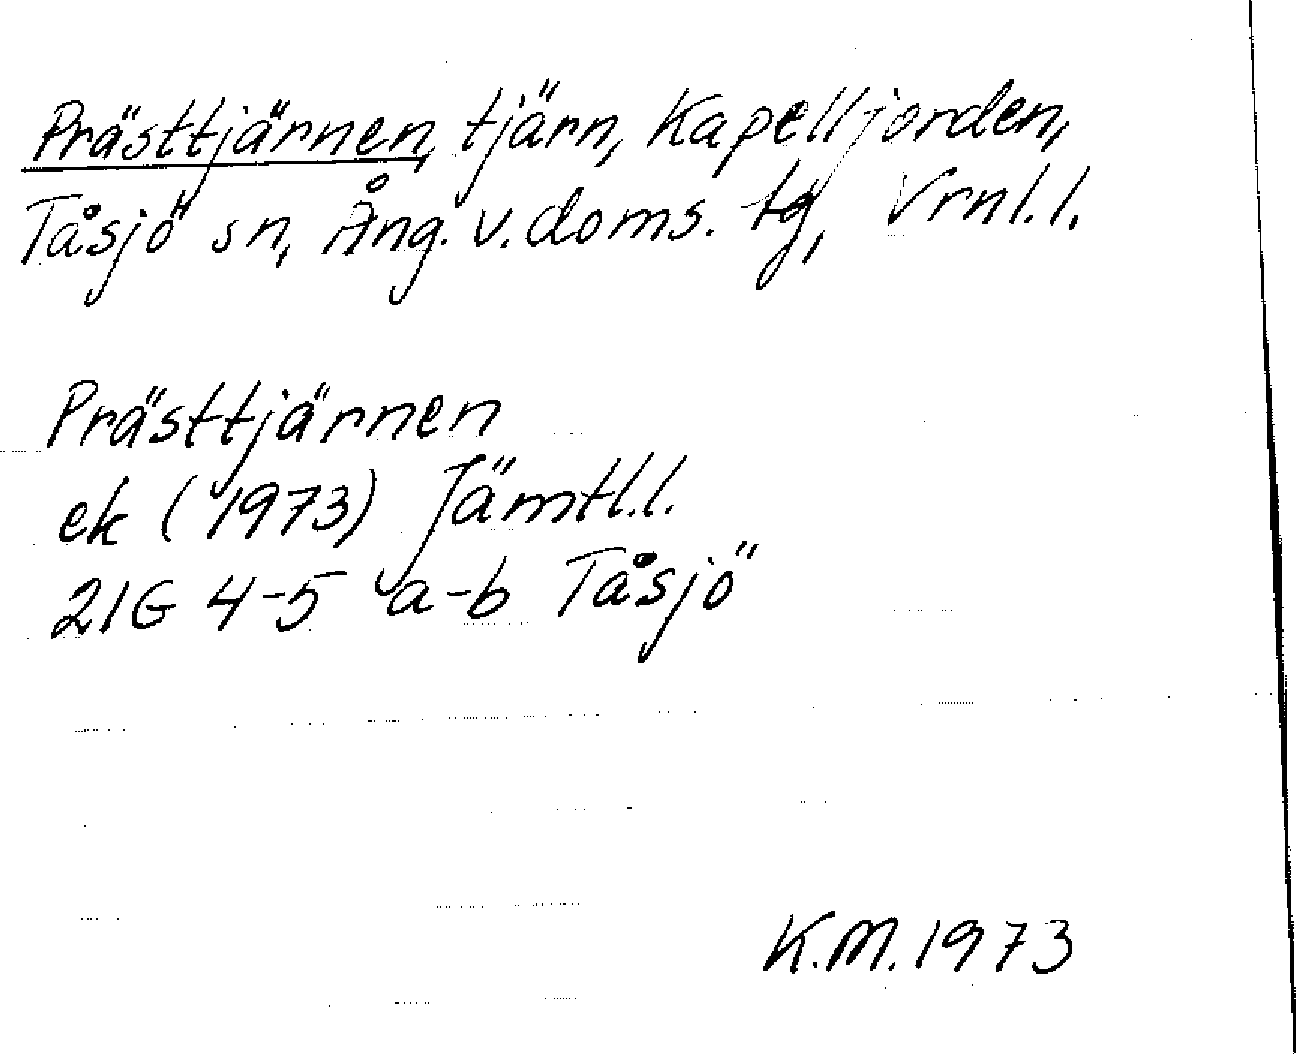 Prästtjärnen, tjärn, Kapelljorden,
Tåsjö sn, Ång. v. doms. tg, Vrnl. l.
Prästtjärnen
ek (1973) Jämtl. l.
21G 4-5 a-b Tåsjö
K.M. 1973